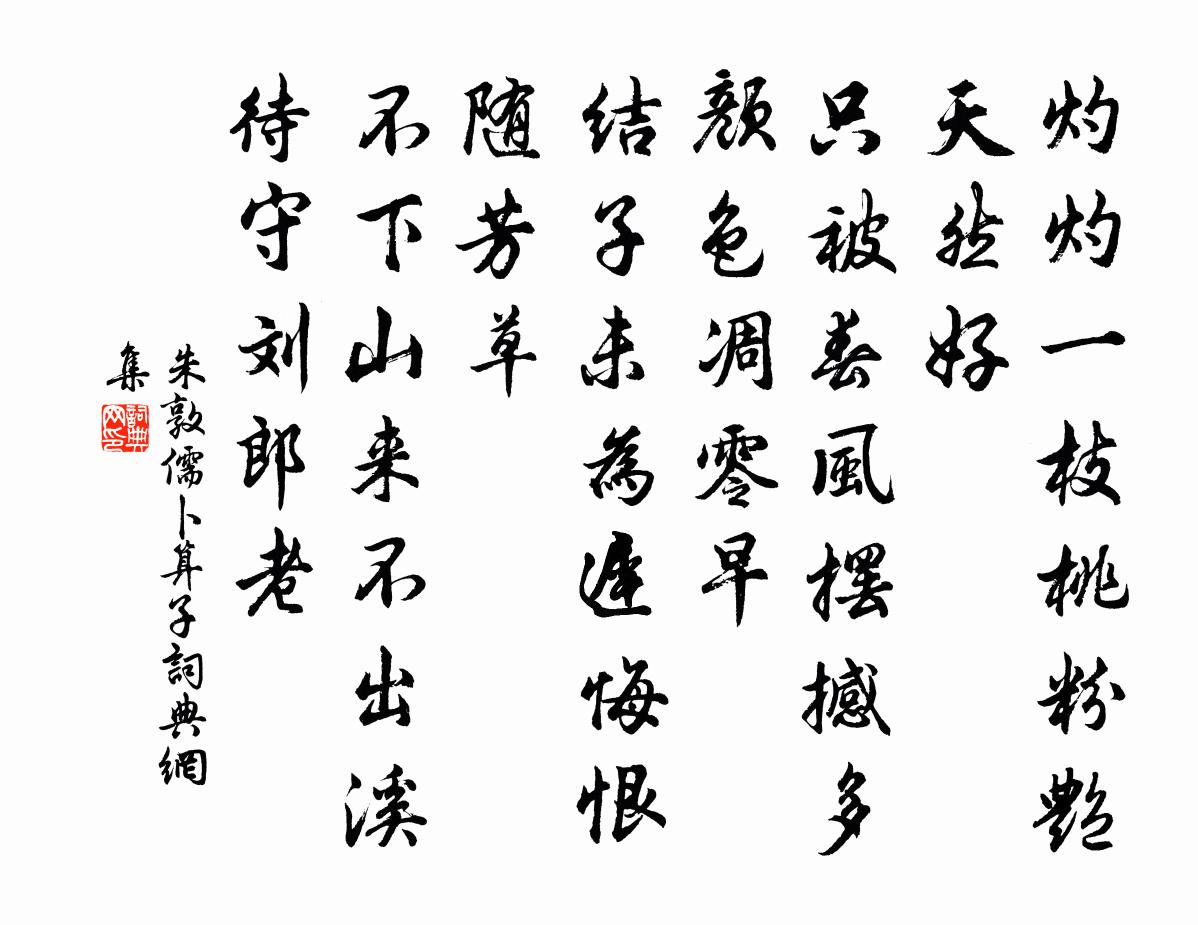 灼灼一枝桃粉艷
天然好
只被春風擺撼多
顏色凋零早
结子未為遲悔恨
随芳草
不下山来不出溪
待守刘郎老
朱敦儒卜算子詞典網
集
詞典網印